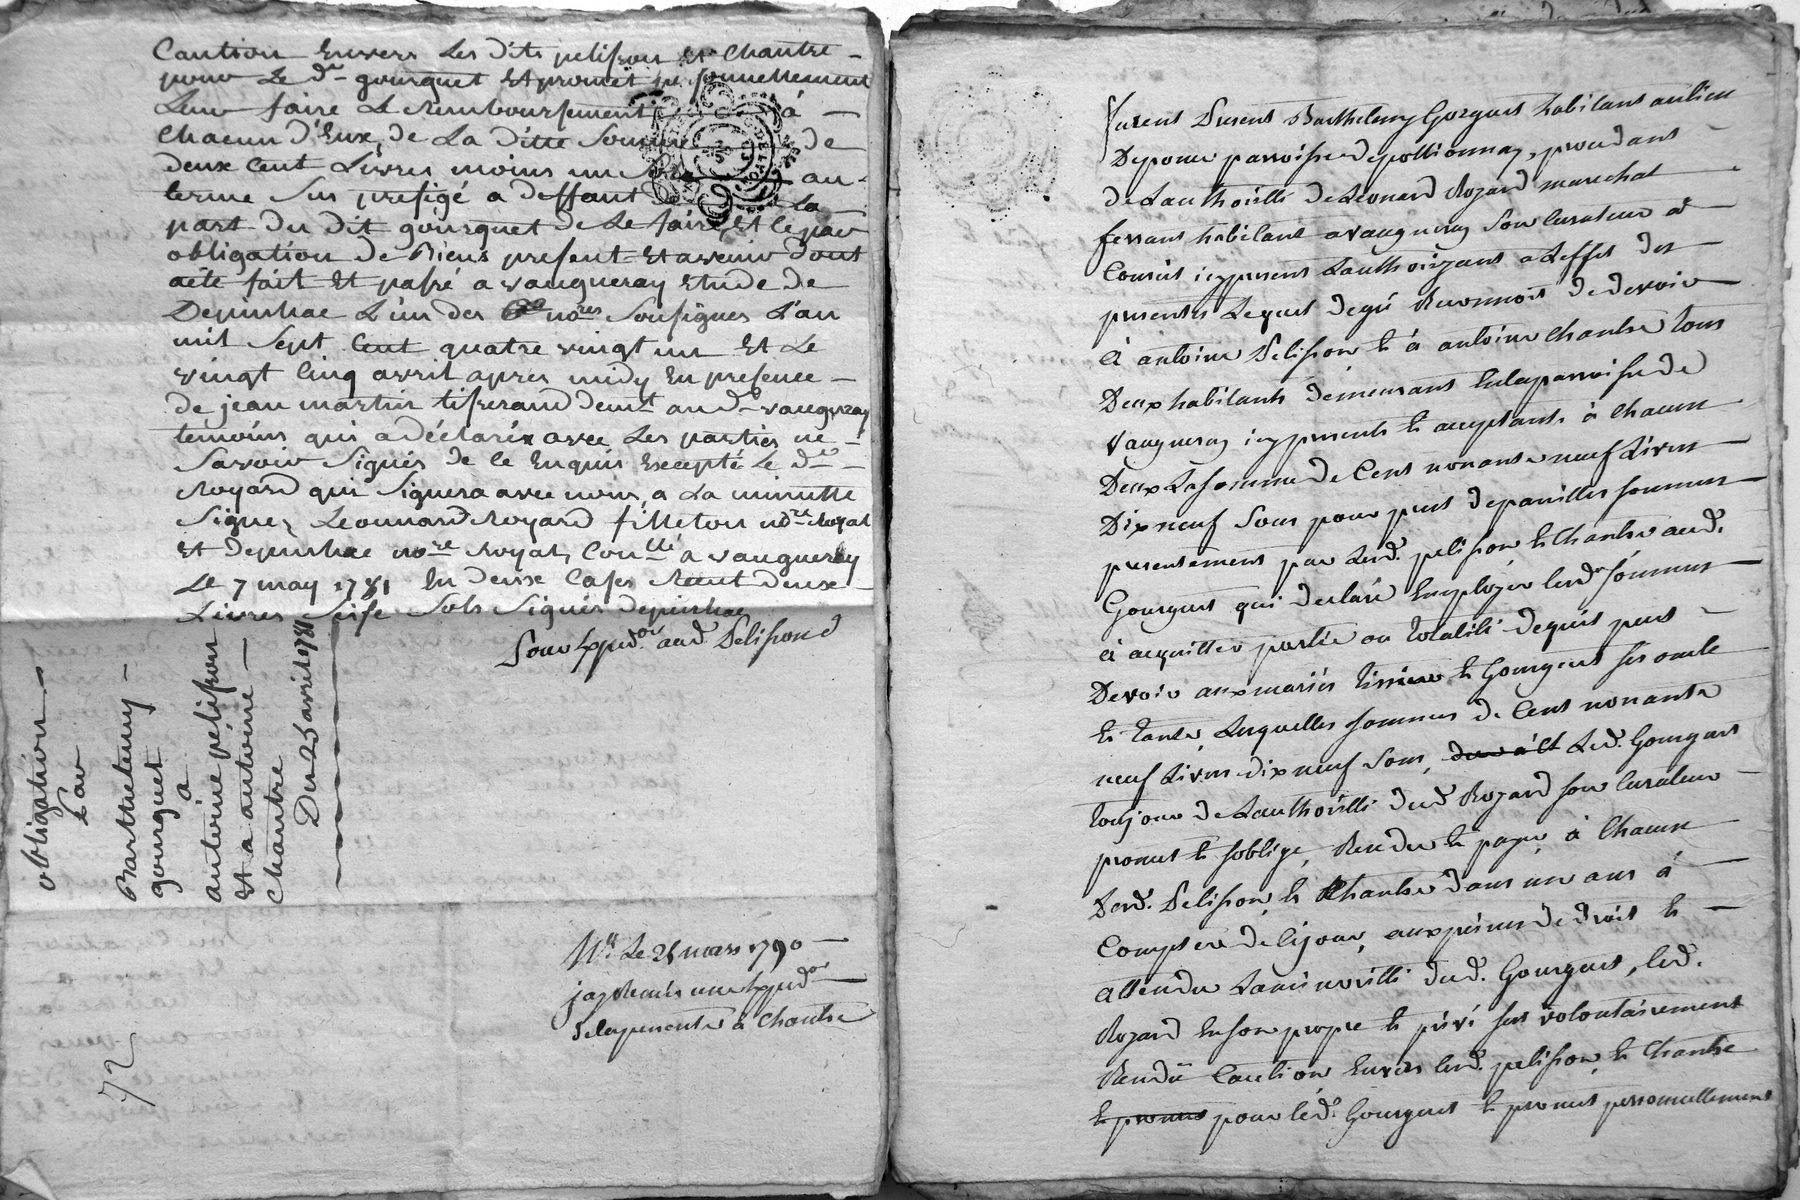 Caution Envers Les dits pelisson Et Chantre –
pour Le dr gourguet Et promet personnellement
Leur faire Le Remboursement à –
Chacun d'Eux, de La ditte Somme de
deux Cent Livres moins un Sol au –
terme Sus prefigé a deffaut La
part du dit gourguet de Le faire, Et le par
obligation de Biens present Et avenir dont
acte fait Et passé a vaugneray Etude de
Depinhac L'un des nores Sousignes L'an
mil Sept Cent quatre vingt un Et Le
vingt Cinq avril apres midy En presence –
de jean martin tisserand demt aud. vaugneray
temoins qui a déclaré avec Les parties ne –
Savoir Signer de ce Enquis Excepté Le dr –
Royard qui Signera avec nous, a La minutte
Signé, Leonnard Royard filleton nore Royal
Et depinhac nore Royal, Conllé a vaugneray
Le 7 may 1781 En deux Cases Recut deux –
Livres Seise Sols Signés depinhac
Pour Expedon aud. Pelisson
obligation –
Par
Barthelemy –
gourguet
a
antoine pélisson
Et a antoine –
Chantre
Du 25 avril 1781
Le 25 mars 1790 –
jay Remis une Expedon –
de la presente à Chantre
72
furent Present Barthelemy Gorguet habitant au lieu
De parroisse de pollionnay, procedant –
de Lauthorité de Léonard Rozard marechal –
ferrant habitant a vaugneray Son Curateur à
Conseil icy present L'authorizant a L'effet des –
presentes Lequel de gré Reconnoit de devoir –
à antoine Pelisson & à antoine Chantre tous
Deux habitants demeurants En la parroisse de
Vaugneray icy presents & acceptants à chacun –
Deux La somme de Cent nonante neuf Livres
Dix neuf Sous pour prest de pareilles sommes –
presentement par Lesd. pelisson & Chantre aud.
Gourguet qui declaré Employer lesd. sommes –
à acquitter partie ou totalité de qu'il peut –
Devoir aux mariés & Gourguet ses oncle
& tante, Lesquelles sommes de Cent nonante
neuf Livres dix neuf Sous, Led. Gourguet
toujour de Lauthorité dud. Rozard son Curateur –
promet & s'oblige, Rendre & payer à Chacun
Desd. Pelisson, & Chantre dans un ans à –
Compter de ce jour, aux peines de droit & –
attendu La minorité dud. Gourguet, led.
Rozard En son propre & privé s'est volontairement
Rendu Caution Envers lesd. pelisson, & Chantre
& promet pour led. Gourguet & promet personnellement